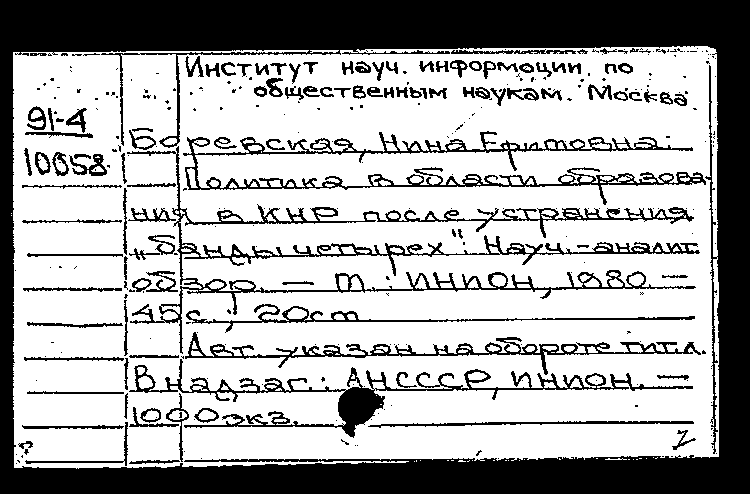 Институт науч. информации по
общественным наукам. Москва
91-4
10058
Боревская, Нина Ефимовна.
Политика в области образова-
ния в КНР после устранения
„банды четырех": Науч.-аналит.
обзор. — М.: ИНИОН, 1980. —
45 с.; 20 cm.
Авт. указан на обороте тит. л.
В надзаг.: АН СССР, ИНИОН. —
1000 экз.